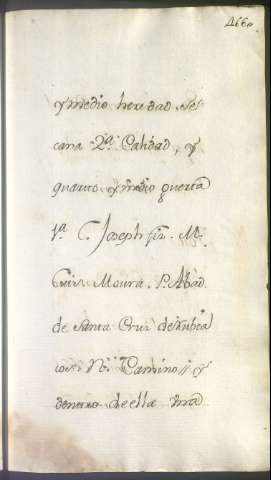 466
y medio heredad Se
cana 2ª. Calidad, y
quarto y medio guerta
1ª. C. Joseph frz. M.
Luis Moura. P. Abad
de Santa Cruz de Rubia
cos. N. Camino // y
dentro de ella una